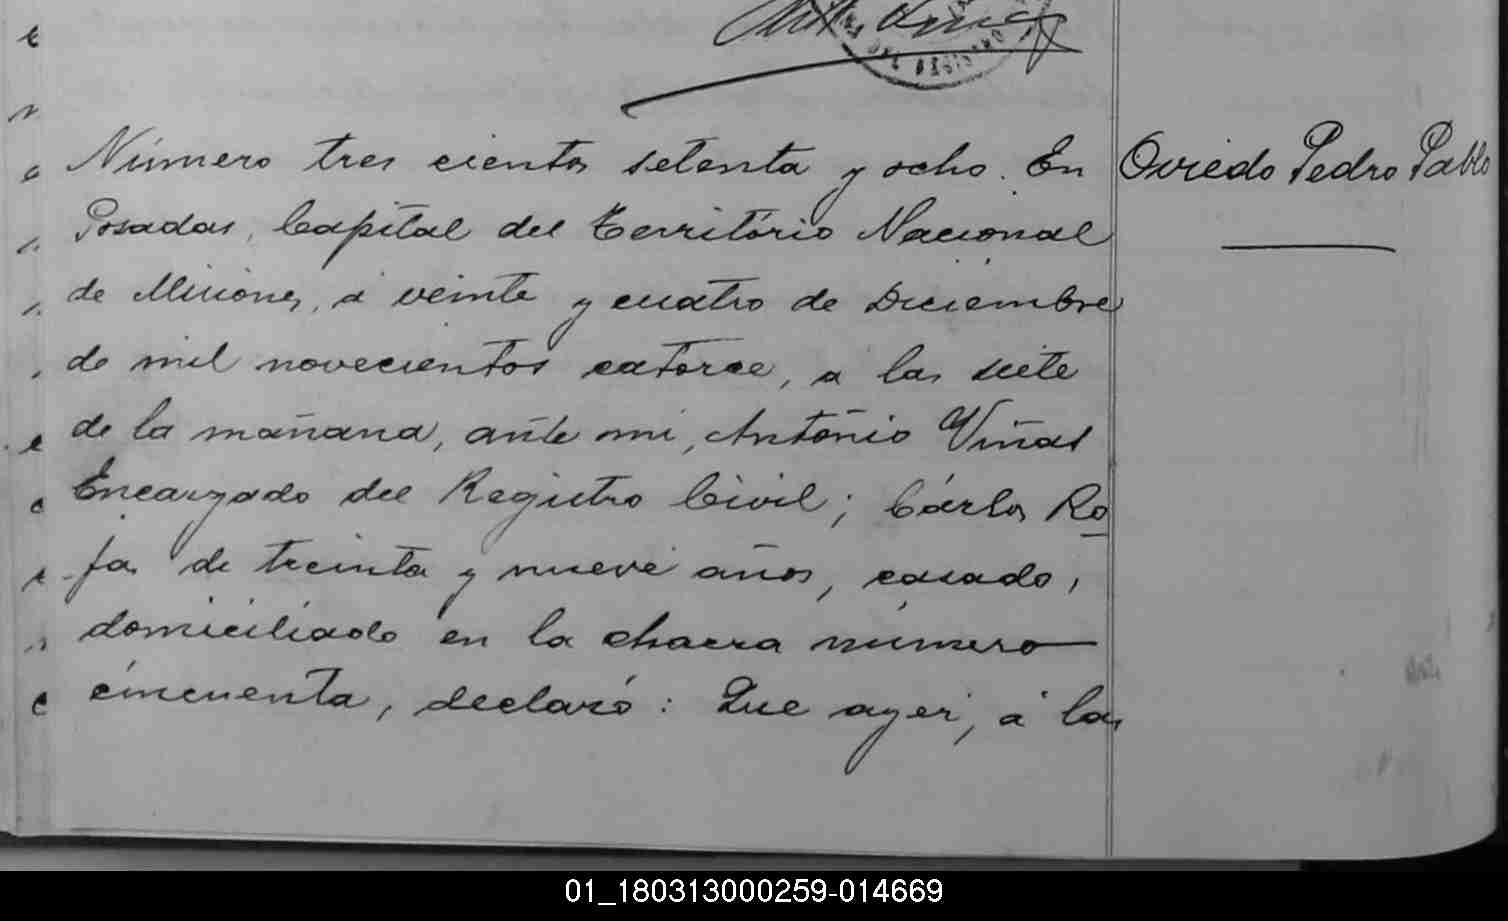 DEL REGISTRO
Número tres cientos setenta y ocho. En
Posadas, Capital del Territorio Nacional
de Misiones, á veinte y cuatro de Diciembre
de mil novecientos catorce, a las siete
de la mañana, ante mi, Antonio Viñas
Encargado del Registro Civil; Cárlos Ro
jas de treinta y nueve años, casado,
domiciliado en la chacra número
cincuenta, declaró: Que ayer, á las
Oviedo Pedro Pablo
01_180313000259-014669